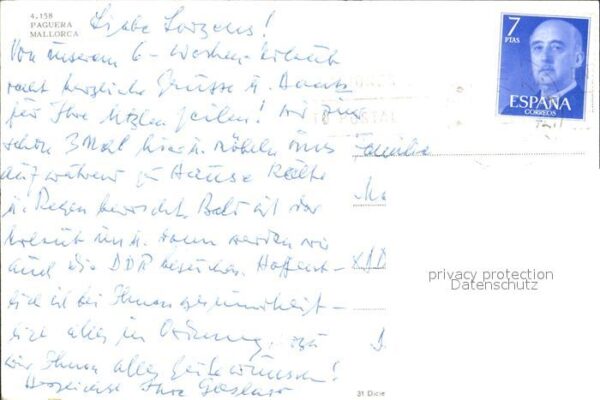 4.158
PAGUERA
MALLORCA
7
PTAS
ESPAÑA
CORREOS
Liebe
Von unserem 6-Wochen-Urlaub
recht herzliche Grüsse u. Dank
für Ihre lieben Zeilen! Wir sind
schon 3 Mal hier u.
Familie
auf während zu Hause Kälte
u. Regen herrscht. Bald ist der
Urlaub um u. dann werden wir
auch die DDR besuchen. Hoffent-
lich ist bei Ihnen gesundheit-
lich alles in Ordnung,
wir Ihnen alles Gute wünschen!
Herzlichst Ihre
privacy protection
Datenschutz
31 Dicie